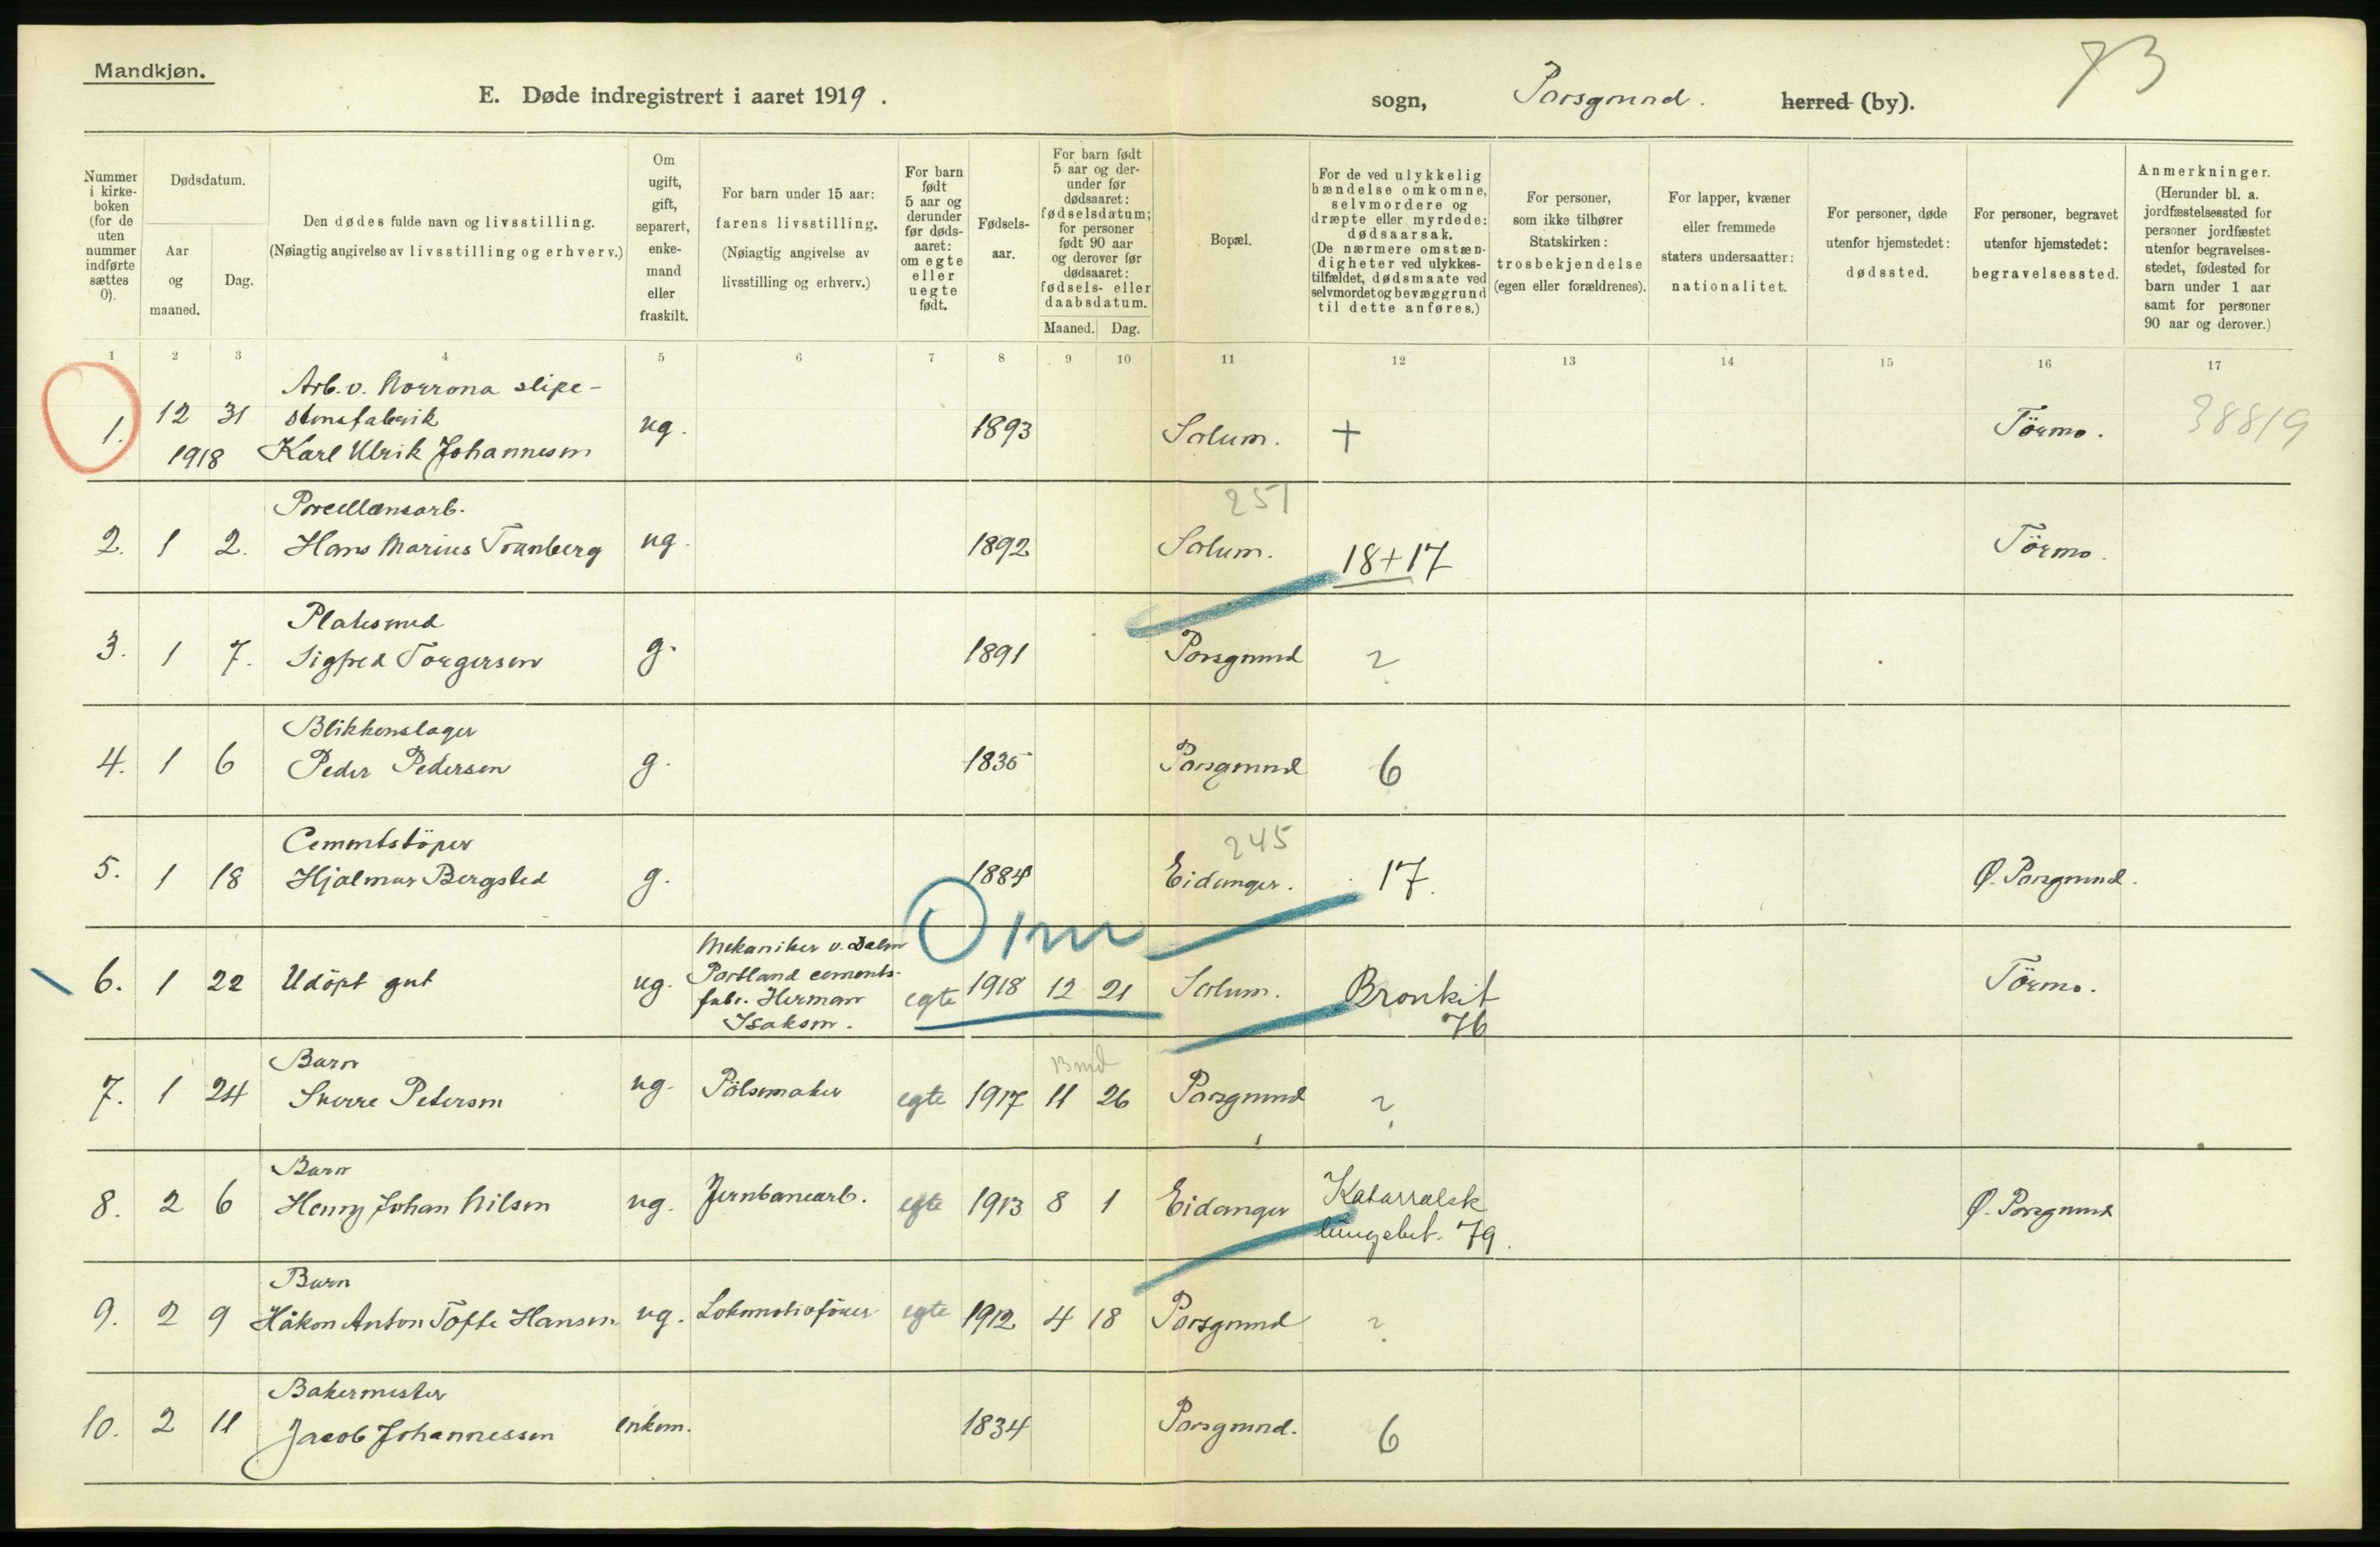 Mandkjøn.
73
E. Døde indregistrert i aaret 1919.
sogn, Porsgrund. herred (by).
Nummer i kirke-boken (for de uten nummer indførte sættes 0).
Dødsdatum.
Aar og maaned.
Dag.
Den dødes fulde navn og livsstilling.
(Nøiagtig angivelse av livsstilling og erhverv.)
Om ugift, gift, separert, enke-mand eller fraskilt.
For barn under 15 aar: farens livsstilling.
(Nøiagtig angivelse av livsstilling og erhverv.)
For barn født 5 aar og derunder før døds-aaret: om egte eller uegte født.
Fødsels-aar.
For barn født 5 aar og der-under før dødsaaret: fødselsdatum; for personer født 90 aar og derover før dødsaaret: fødsels- eller daabsdatum.
Maaned. Dag.
Bopæl.
For de ved ulykkelig hændelse omkomne, selvmordere og dræpte eller myrdede: dødsaarsak.
(De nærmere omstæn-digheter ved ulykkes-tilfældet, dødsmaate ved selvmordet og bevæggrund til dette anføres.)
For personer, som ikke tilhører Statskirken: trosbekjendelse (egen eller forældrenes).
For lapper, kvæner eller fremmede staters undersaatter: nationalitet.
For personer, døde utenfor hjemstedet: dødssted.
For personer, begravet utenfor hjemstedet: begravelsessted.
Anmerkninger.
(Herunder bl. a. jordfæstelsessted for personer jordfæstet utenfor begravelses-stedet, fødested for barn under 1 aar samt for personer 90 aar og derover.)
1 2 3 4 5 6 7 8 9 10 11 12 13 14 15 16 17
Arb. v. Norrona slipe-
1. 12 31 stensfabrik ug. 1893 Solum. + Törmo. 38819
1918 Karl Ulrik Johannesen
Porcellænsarb. 251
2. 1 2. Hans Marius Tranberg ug. 1892 Solum. 18+17 Törmo.
Platesmed
3. 1 7. Sigfred Torgersen g. 1891 Porsgrund ?
Blikkenslager
4. 1 6 Peder Pedersen g. 1835 Porsgrund 6
Cementstöper 245
5. 1 18 Hjalmar Bergsted g. 1884 Eidanger. 17. Ø. Porsgrund.
Mekaniker v. Dalen
Portland cements-
6. 1 22 Udöpt gut ug. fabr. Herman egte 1918 12 21 Solum. Bronkit Törmo.
Isaksen. 76
1 m
Barn 13 md
7. 1 24 Sverre Petersen ug. Pölsemaker egte 1917 11 26 Porsgrund ?
Barn
8. 2 6 Henry Johan Nilsen ug. Jernbanearb. egte 1913 8 1 Eidanger Katarralsk Ø. Porsgrund
lungebet. 79.
Barn
9. 2 9 Håkon Anton Tofte Hansen ug. Lokomotivförer egte 1912 4 18 Porsgrund ?
Bakermester
10. 2 11 Jacob Johannessen enkem. 1834 Porsgrund. 6